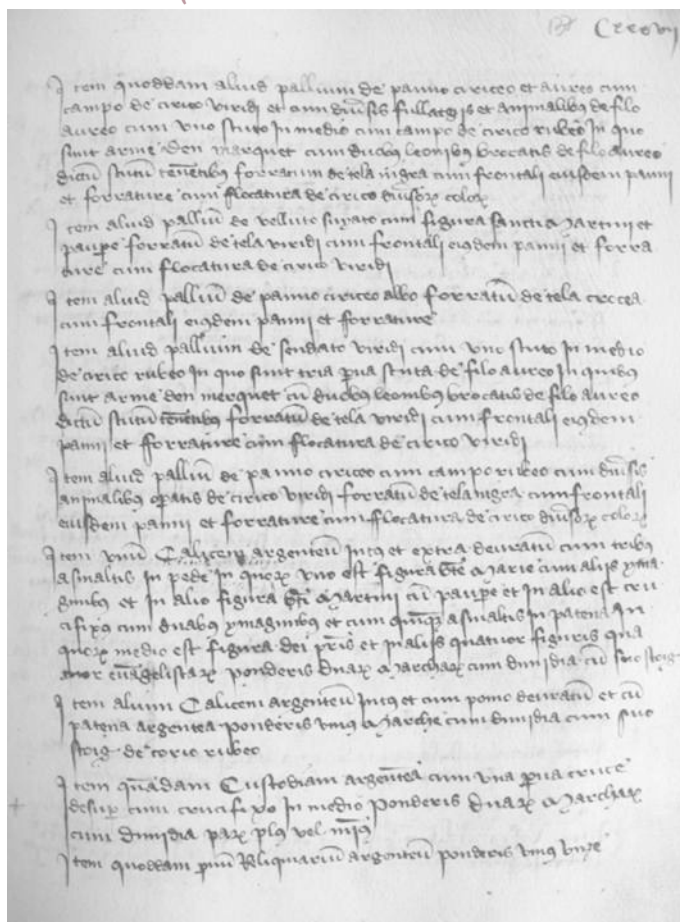 Cxxxvij
Item quoddam aliud pallium de panno ciriceo et aureo cum
campo de cirico viridi et cum diũsis fullatgis et animalibus de filo
aureo cum vno scuto In medio cum campo de cirico rubeo In quo
sunt arme den marquet cum duobus leonibus brocatis de filo aureo
dictũ scutũ tenentibus forratum de tela nigra cum frontali eiusdem panni
et forrature cum flocatura de cirico diũsorꝝ colorꝝ
Item aliud palliũ de velluto cum figura sancti Martini et
paupe forratũ de tela viridi cum frontali eiusdem panni et forra
ture cum flocatura de cirico viridi
Item aliud palliũ de panno ciriceo albo forratũ de tela crocea
cum frontali eiusdem panni et forrature
Item aliud pallium de sendato viridi cum vno scuto In medio
de cirico rubeo In quo sunt tria pua scuta de filo aureo In quibus
sunt arme den merquet cũ duobus leonibus brocatis de filo aureo
dictũ scutũ tenentibus forratũ de tela viridi cum frontali eiusdem
panni et forrature cum flocatura de cirico viridi
Item aliud palliũ de panno ciriceo cum campo rubeo cum diũsis
animalibus opatis de cirico viridi forratũ de tela nigra cum frontali
eiusdem panni et forrature cum flocatura de cirico diũsorꝝ colorꝝ
Item vnũ Calicem argenteũ Intus et extra deuratũ cum tribus
asmaltis In pede In quorꝝ vno est figura Ste Marie cum alijs yma
ginibus et In alio figura Sti Martini cũ paupe et In alio est cru
cifixus cum duabus ymaginibus et cum quinqꝫ asmaltis in patena In
quorꝝ medio est figura dei pris et in alijs quatuor figuris qua
tuor euãgelistarꝝ ponderis duarꝝ Marcharꝝ cum dimidia cũ suo stoig
Item alium Calicem argenteũ Intus et cum pomo deuratũ et cũ
patena argentea ponderis vnius Marche cum dimidia cum suo
stoig de corio rubeo
Item quãdam Custodiam argenteã cum vna pua cruce
desup cum crucifixo In medio ponderis duarꝝ Marcharꝝ
cum dimidia parꝝ plus vel minus
Item quoddam puũ Reliquiariũ argenteũ ponderis vnius vnze